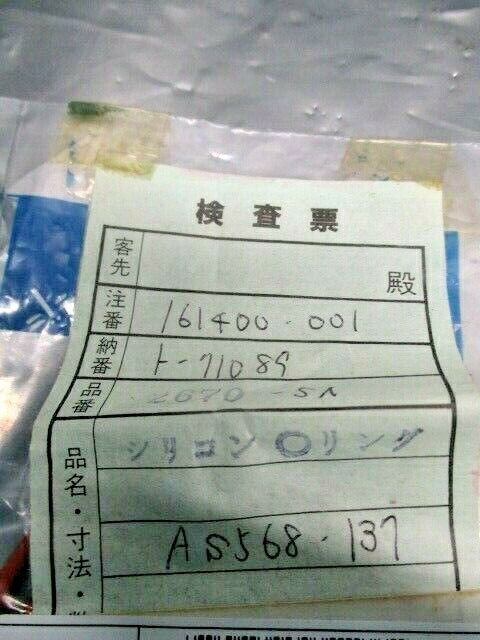 検査票
客先 殿
注番 161400-001
納番 ト-71089
品番
シリコン Oリング
品名・寸法・
AS568-137